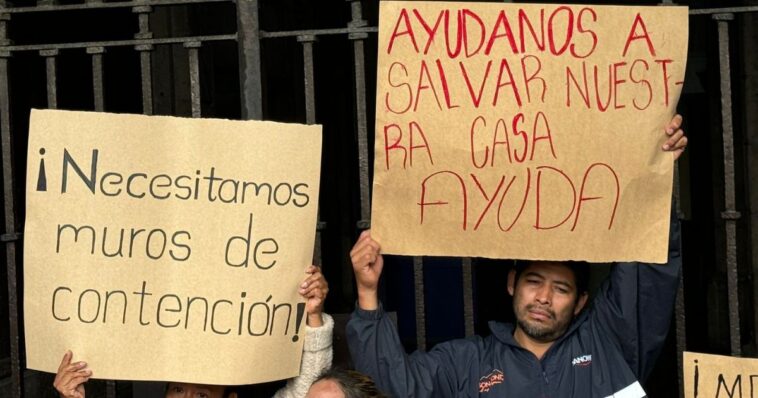 ¡Necesitamos
muros de
contención!
AYUDANOS A
SALVAR NUEST-
RA CASA
AYUDA
¡